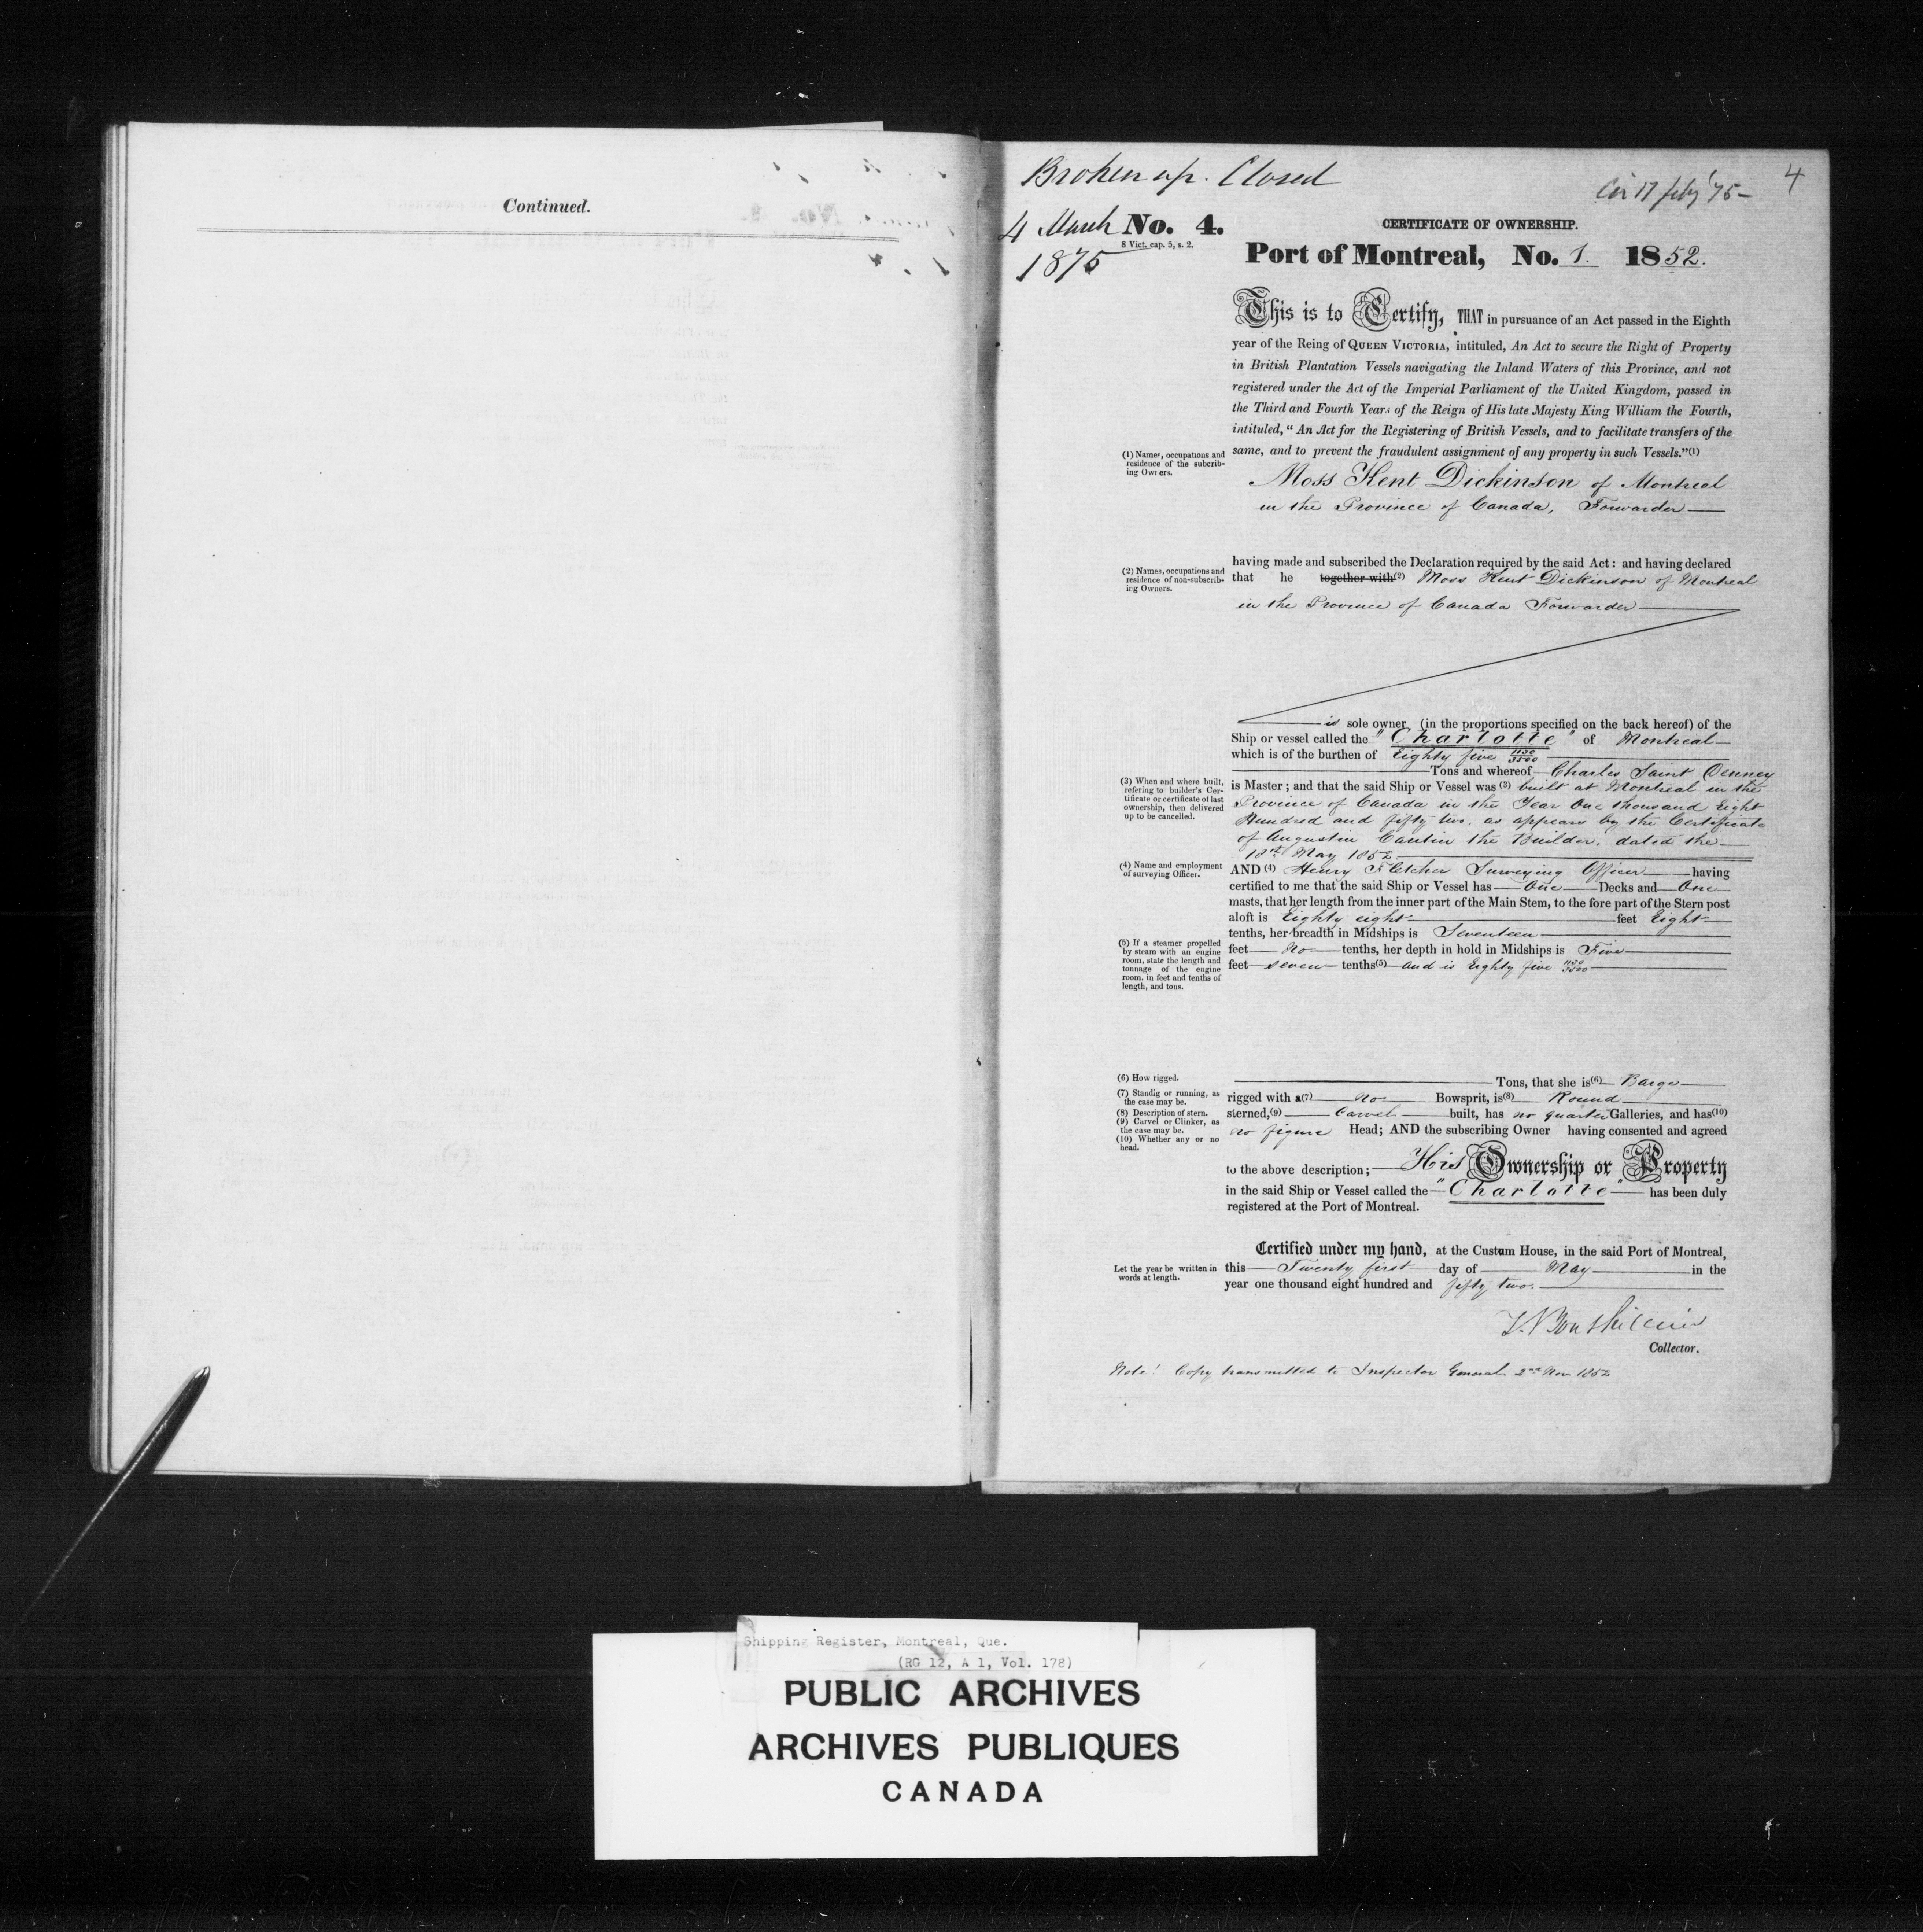 Continued.
Broken up. Closed
4 March
1875
Cir 17 feby '75 -
4
No. 4.
8 Vict. cap. 5, s. 2.
CERTIFICATE OF OWNERSHIP.
Port of Montreal, No. 1. 1852.
This is to Certify, THAT in pursuance of an Act passed in the Eighth
year of the Reing of QUEEN VICTORIA, intituled, An Act to secure the Right of Property
in British Plantation Vessels navigating the Inland Waters of this Province, and not
registered under the Act of the Imperial Parliament of the United Kingdom, passed in
the Third and Fourth Years of the Reign of His late Majesty King William the Fourth,
intituled, "An Act for the Registering of British Vessels, and to facilitate transfers of the
same, and to prevent the fraudulent assignment of any property in such Vessels."(1)
(1) Names, occupations and
residence of the subcrib-
ing Owners.
Moss Kent Dickinson of Montreal
in the Province of Canada, Forwarder
having made and subscribed the Declaration required by the said Act: and having declared
(2) Names, occupations and
residence of non-subscrib-
ing Owners.
that he together with(2) Moss Kent Dickinson of Montreal
in the Province of Canada Forwarder
is sole owner (in the proportions specified on the back hereof) of the
Ship or vessel called the "Charlotte" of Montreal
which is of the burthen of Eighty five 1130/3500
Tons and whereof Charles Saint Denney
(3) When and where built,
refering to builder's Cer-
tificate or certificate of last
ownership, then delivered
up to be cancelled.
is Master; and that the said Ship or Vessel was (3) built at Montreal in the
Province of Canada in the Year One thousand Eight
Hundred and fifty two, as appears by the Certificate
of Augustin Cantin the Builder. dated the
18th May 1852
(4) Name and employment
of surveying Officer.
AND (4) Henry Fletcher Surveying Officer having
certified to me that the said Ship or Vessel has One Decks and One
masts, that her length from the inner part of the Main Stem, to the fore part of the Stern post
aloft is Eighty eight feet Eight
tenths, her breadth in Midships is Seventeen
feet No tenths, her depth in hold in Midships is Five
feet seven tenths(5) and is Eighty five 1130/3500
(5) If a steamer propelled
by steam with an engine
room, state the length and
tonnage of the engine
room, in feet and tenths of
length, and tons.
(6) How rigged.
(7) Standig or running, as
the case may be.
(8) Description of stern.
(9) Carvel or Clinker, as
the case may be.
(10) Whether any or no
head.
Tons, that she is(6) Barge
rigged with a(7) no Bowsprit, is(8) Round
sterned,(9) Carvel built, has no quarter Galleries, and has(10)
no figure Head; AND the subscribing Owner having consented and agreed
to the above description; His Ownership or Property
in the said Ship or Vessel called the "Charlotte" has been duly
registered at the Port of Montreal.
Certified under my hand, at the Custom House, in the said Port of Montreal,
Let the year be written in
words at length.
this Twenty first day of May in the
year one thousand eight hundred and fifty two.
Collector.
Note! Copy transmitted to Inspector General 2nd Nov 1852
Shipping Register, Montreal, Que.
(RG 12, A 1, Vol. 178)
PUBLIC ARCHIVES
ARCHIVES PUBLIQUES
CANADA